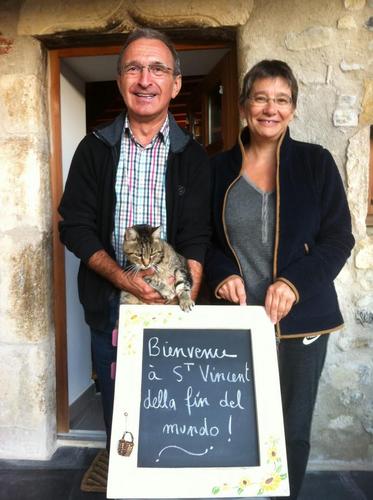 Bienvenue
à ST Vincent
della fin del
mundo !